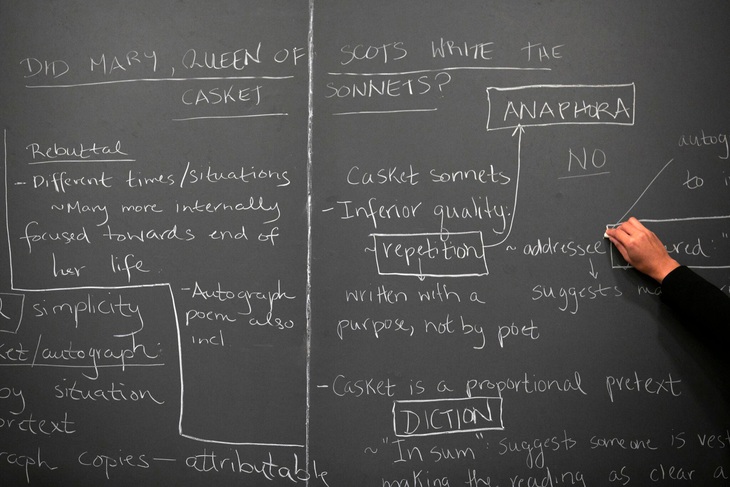 DID MARY, QUEEN OF SCOTS WRITE THE
CASKET SONNETS?
Rebuttal
- Different times/situations
~Mary more internally
focused towards end of
her life.
simplicity
ket/autograph:
by situation
pretext
raph copies — attributable
- Autograph
poem also
incl
ANAPHORA
NO
Casket sonnets
- Inferior quality:
~ repetition
written with a
purpose, not by poet
~ addressee
red: "
suggests
autog
to i
- Casket is a proportional pretext
DICTION
~ "In sum": suggests someone is vest
making the reading as clear a